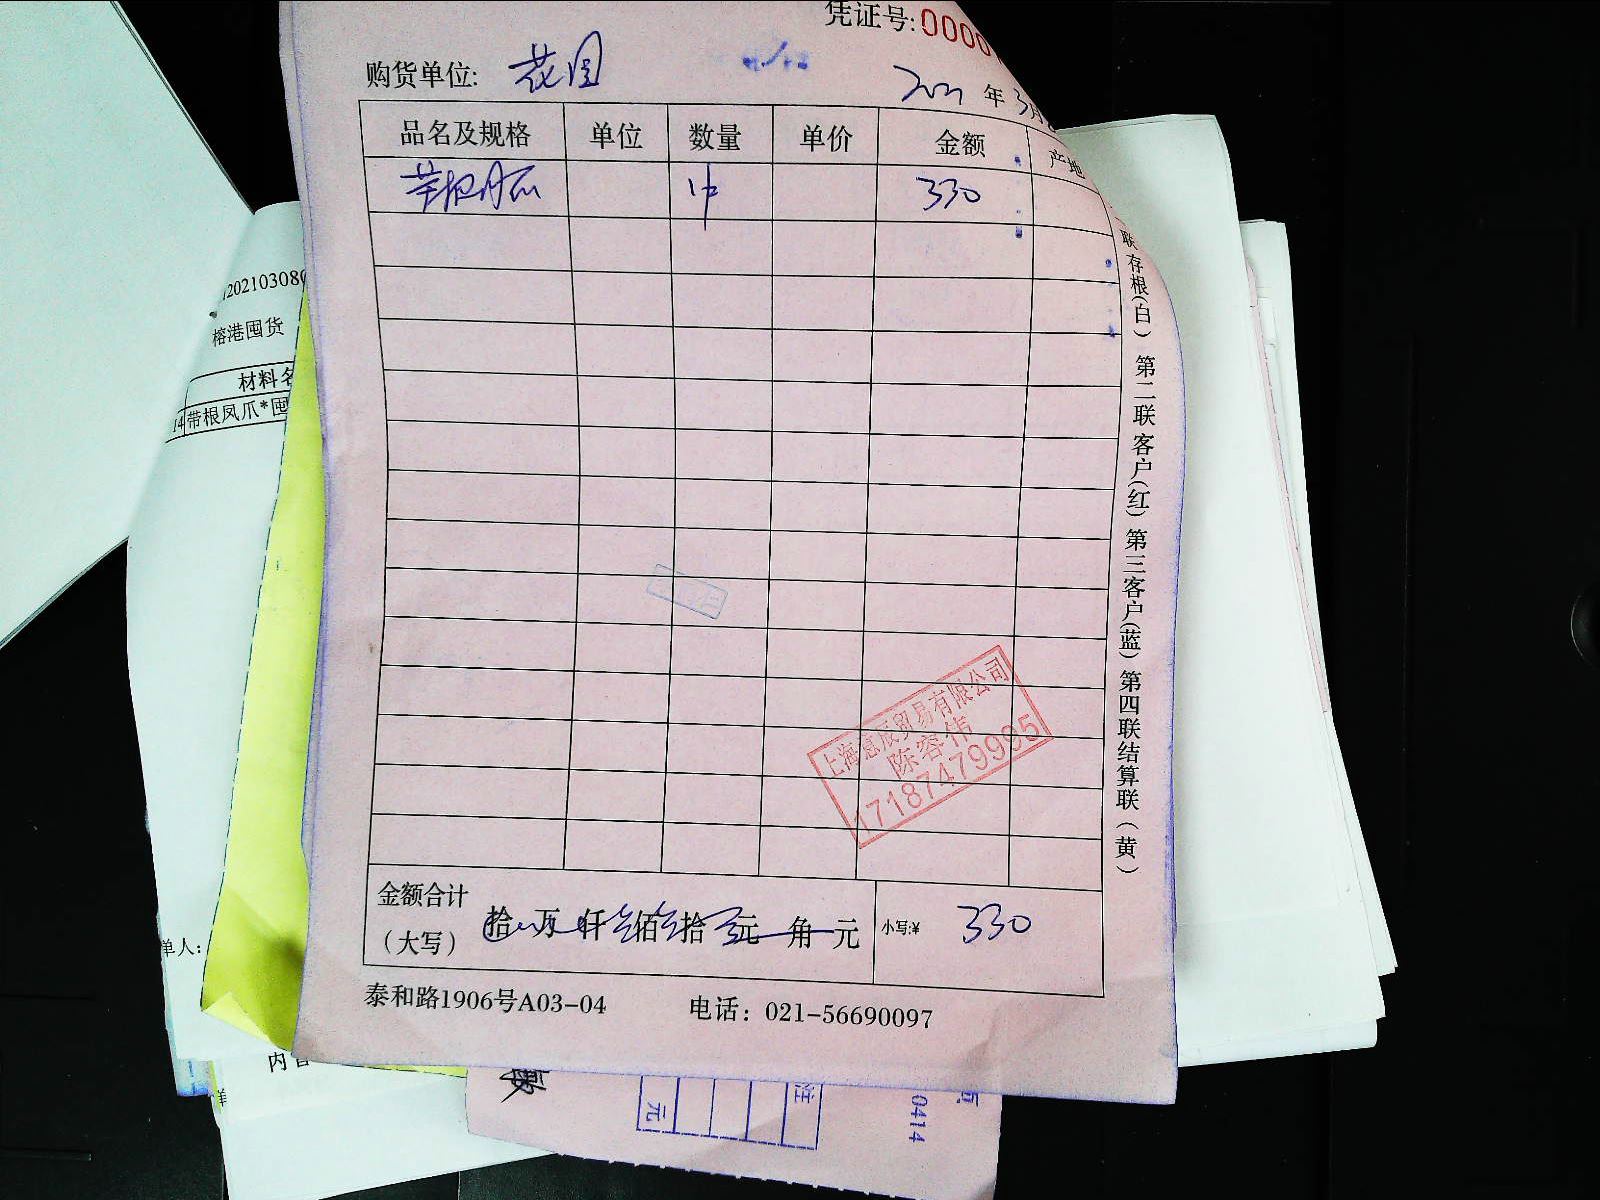 凭证号:0000
购货单位: 花园
2021 年 3月
品名及规格 单位 数量 单价 金额 产地
带根凤爪 1件 330
金额合计（大写） 拾 万 仟 佰 拾 元 角 元 小写:¥ 330
泰和路1906号A03-04 电话：021-56690097
联 存根(白) 第二联 客户(红) 第三客户(蓝) 第四联结算联（黄）
陈容伟
17187479995
202103080
榕港囤货
材料名
14 带根凤爪*囤
单人:
内
元
注
0414